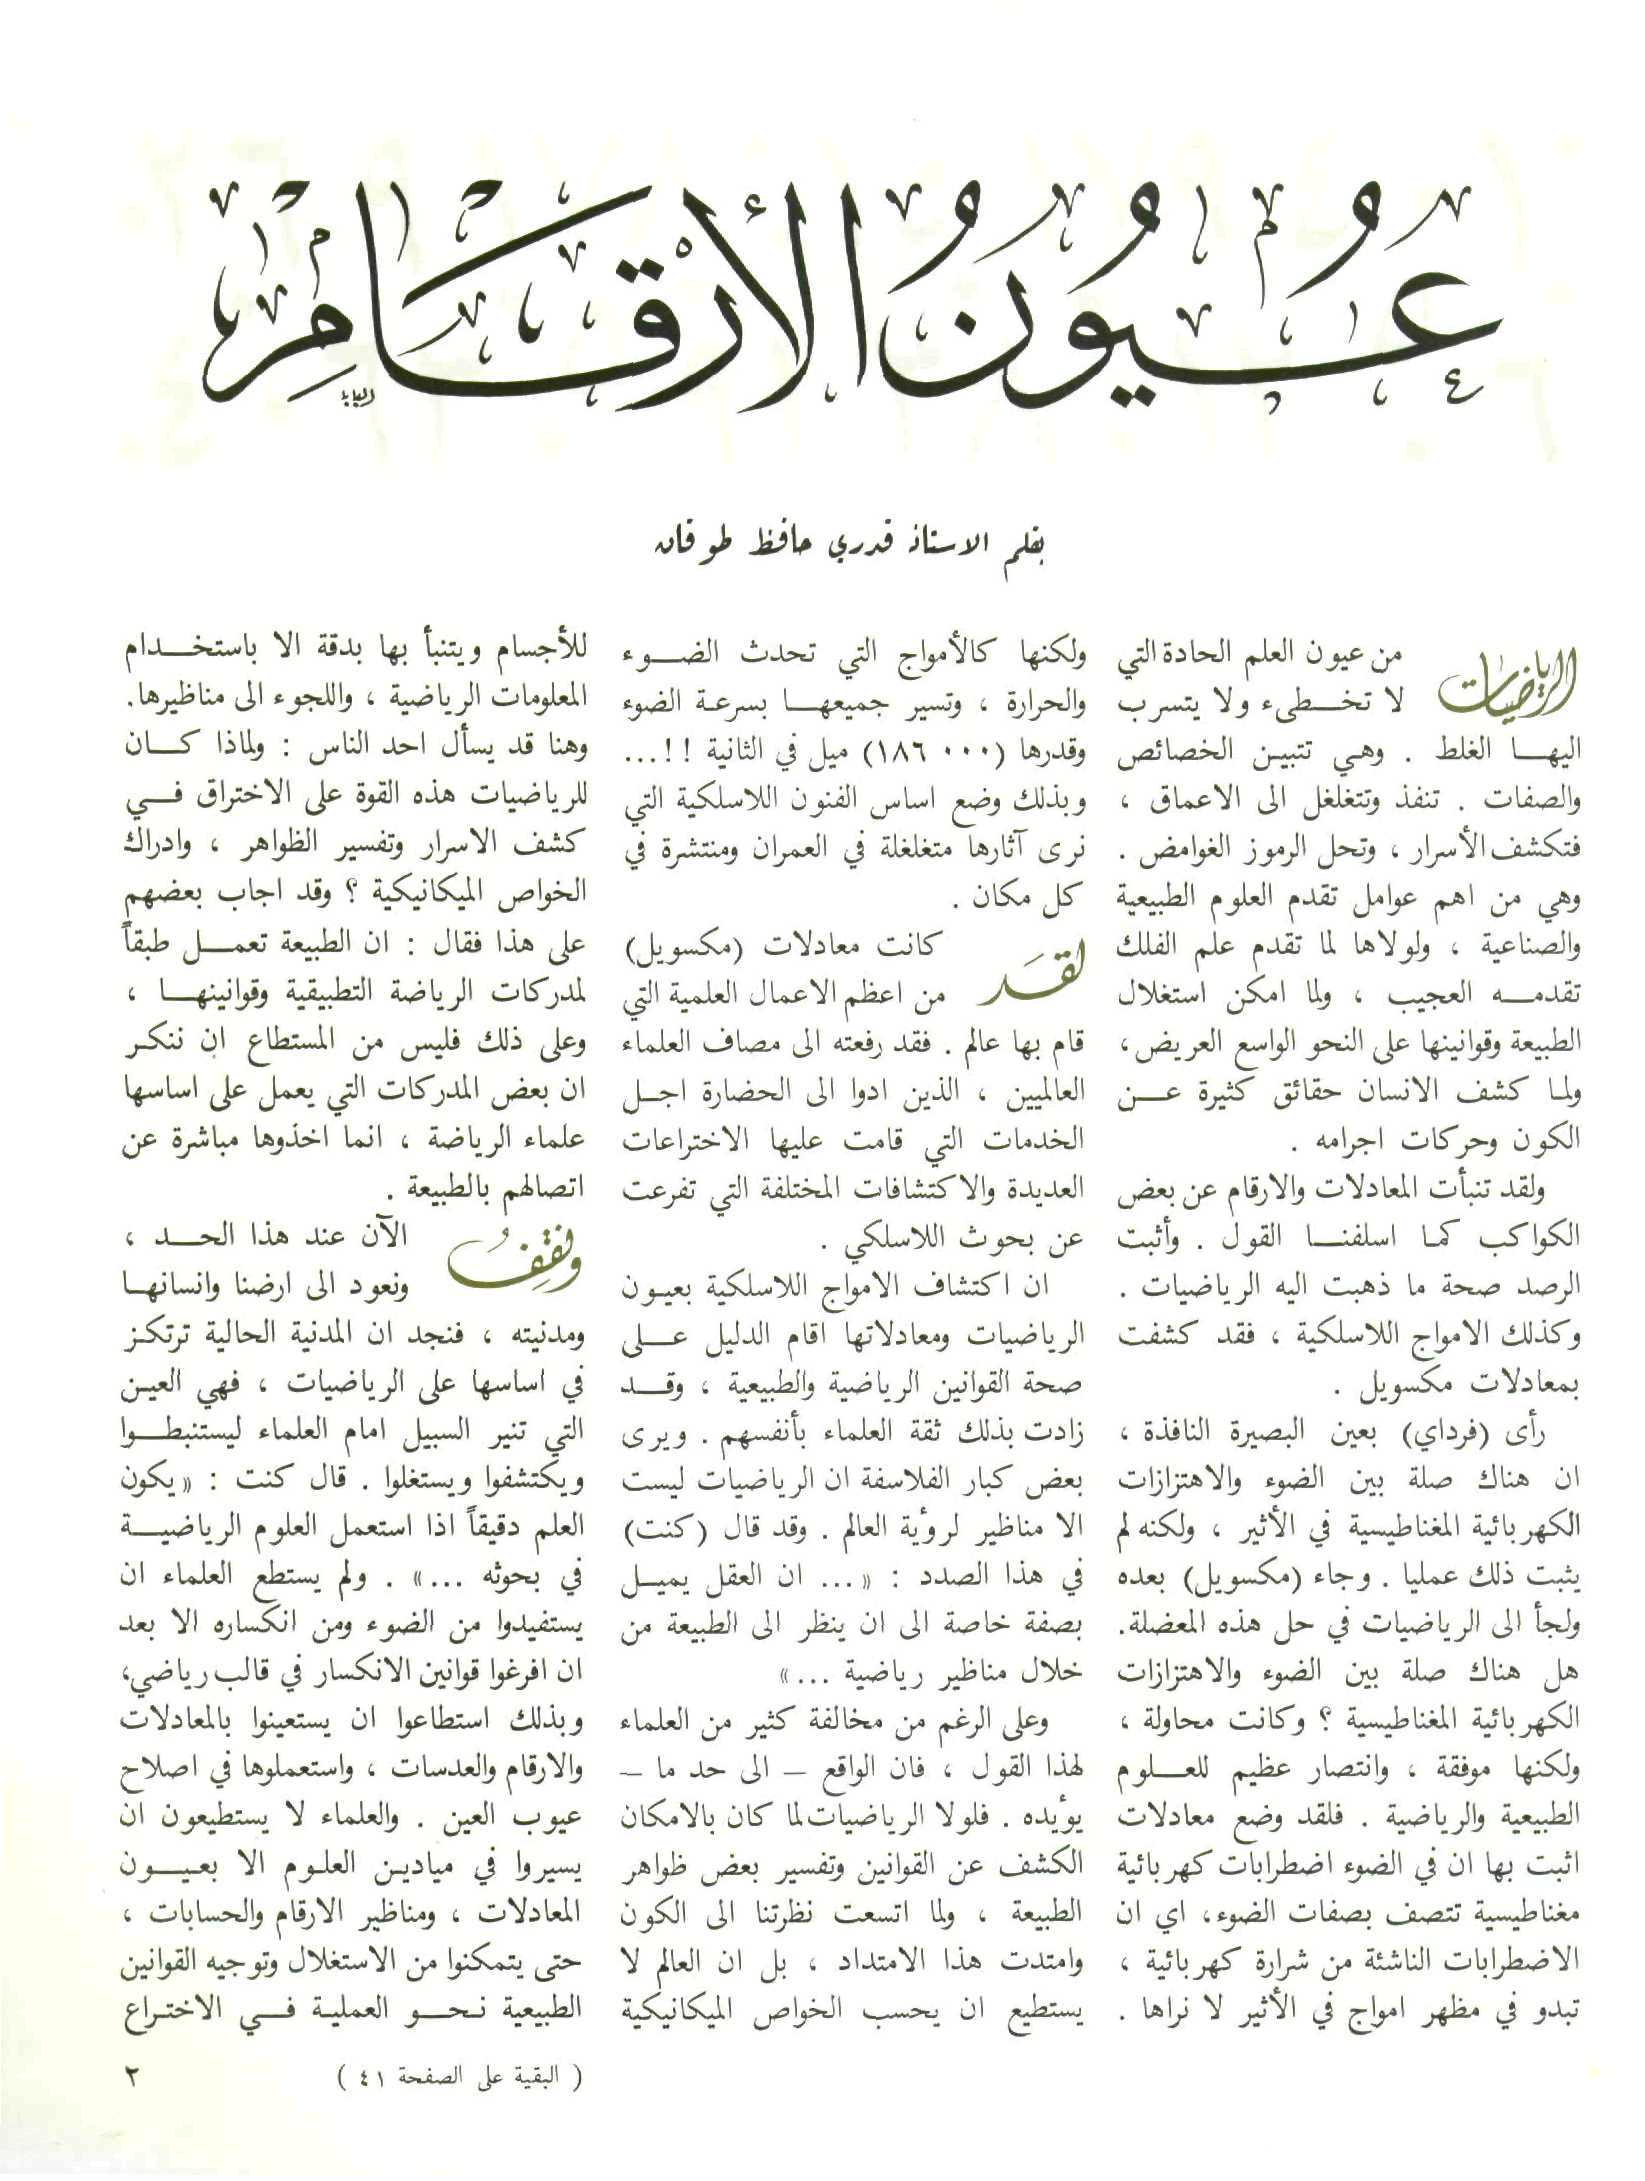 عُيُونُ الأَرْقَامِ
بقلم الاستاذ قدري حافظ طوقان
الرياضيات من عيون العلم الحادة التي
لا تخـــطىء ولا يتسرب
اليهـــا الغلط . وهي تتبيـن الخصائص
والصفات . تنفذ وتتغلغل الى الاعماق ،
فتكشف الأسرار ، وتحل الرموز الغوامض .
وهي من اهم عوامل تقدم العلوم الطبيعية
والصناعية ، ولولاها لما تقدم علم الفلك
تقدمـــه العجيب ، ولما امكن استغلال
الطبيعة وقوانينها على النحو الواسع العريض،
ولمـا كشف الانسان حقائق كثيرة عـــن
الكون وحركات اجرامه .
ولقد تنبأت المعادلات والارقام عن بعض
الكواكب كمـا اسلفنـــا القول . وأثبت
الرصد صحة ما ذهبت اليه الرياضيات .
وكذلك الامواج اللاسلكية ، فقد كشفت
بمعادلات مكسويل .
رأى (فرداي) بعين البصيرة النافذة ،
ان هناك صلة بين الضوء والاهتزازات
الكهربائية المغناطيسية في الأثير ، ولكنه لم
يثبت ذلك عمليا . وجاء (مكسويل) بعده
ولجأ الى الرياضيات في حل هذه المعضلة.
هل هناك صلة بين الضوء والاهتزازات
الكهربائية المغناطيسية ؟ وكانت محاولة ،
ولكنها موفقة ، وانتصار عظيم للعـــلوم
الطبيعية والرياضية . فلقد وضع معادلات
اثبت بها ان في الضوء اضطرابات كهربائية
مغناطيسية تتصف بصفات الضوء، اي ان
الاضطرابات الناشئة من شرارة كهربائية ،
تبدو في مظهر امواج في الأثير لا نراها .
ولكنها كالأمواج التي تحدث الضـــوء
والحرارة ، وتسير جميعهـــا بسرعـة الضوء
وقدرها (١٨٦ ٠٠٠) ميل في الثانية !!...
وبذلك وضع اساس الفنون اللاسلكية التي
نرى آثارها متغلغلة في العمران ومنتشرة في
كل مكان .
لقد كانت معادلات (مكسويل)
من اعظم الاعمال العلمية التي
قام بها عالم . فقد رفعته الى مصاف العلماء
العالميين ، الذين ادوا الى الحضارة اجـل
الخدمات التي قامت عليها الاختراعات
العديدة والاكتشافات المختلفة التي تفرعت
عن بحوث اللاسلكي .
ان اكتشاف الامواج اللاسلكية بعيـون
الرياضيات ومعادلاتها اقام الدليل عـــلى
صحة القوانين الرياضية والطبيعية ، وقـــد
زادت بذلك ثقة العلماء بأنفسهم . ويرى
بعض كبار الفلاسفة ان الرياضيات ليست
الا مناظير لرؤية العالم . وقد قال (كنت)
في هذا الصدد : «... ان العقل يميـــل
بصفة خاصة الى ان ينظر الى الطبيعة من
خلال مناظير رياضية ...»
وعلى الرغم من مخالفة كثير من العلماء
لهذا القول ، فان الواقع – الى حد ما –
يؤيده . فلولا الرياضيات لما كان بالامكان
الكشف عن القوانين وتفسير بعض ظواهر
الطبيعة ، ولما اتسعت نظرتنا الى الكون
وامتدت هذا الامتداد ، بل ان العالم لا
يستطيع ان يحسب الخواص الميكانيكية
للأجسام ويتنبأ بها بدقة الا باستخـــدام
المعلومات الرياضية ، واللجوء الى مناظيرها.
وهنا قد يسأل احد الناس : ولماذا كـــان
للرياضيات هذه القوة على الاختراق فـــي
كشف الاسرار وتفسير الظواهر ، وادراك
الخواص الميكانيكية ؟ وقد اجاب بعضهم
على هذا فقال : ان الطبيعة تعمـــل طبقاً
لمدركات الرياضة التطبيقية وقوانينهـــا ،
وعلى ذلك فليس من المستطاع ان ننكـر
ان بعض المدركات التي يعمل على اساسها
علماء الرياضة ، انما اخذوها مباشرة عن
اتصالهم بالطبيعة .
ولنقف الآن عند هذا الحـــد ،
ونعود الى ارضنا وانسانهـا
ومدنيته ، فنجد ان المدنية الحالية ترتكـز
في اساسها على الرياضيات ، فهي العيـن
التي تنير السبيل امام العلماء ليستنبطـــوا
ويكتشفوا ويستغلوا . قال كنت : «يكون
العلم دقيقاً اذا استعمل العلوم الرياضيـــة
في بحوثه ...» . ولم يستطع العلماء ان
يستفيدوا من الضوء ومن انكساره الا بعد
ان افرغوا قوانين الانكسار في قالب رياضي،
وبذلك استطاعوا ان يستعينوا بالمعادلات
والارقام والعدسات ، واستعملوها في اصلاح
عيوب العين . والعلماء لا يستطيعون ان
يسيروا في مياديـن العلـوم الا بعيـــون
المعادلات ، ومناظير الارقام والحسابات ،
حتى يتمكنوا من الاستغلال وتوجيه القوانين
الطبيعية نحـــو العملية فـــي الاختـراع
( البقية على الصفحة ٤١ )
٢